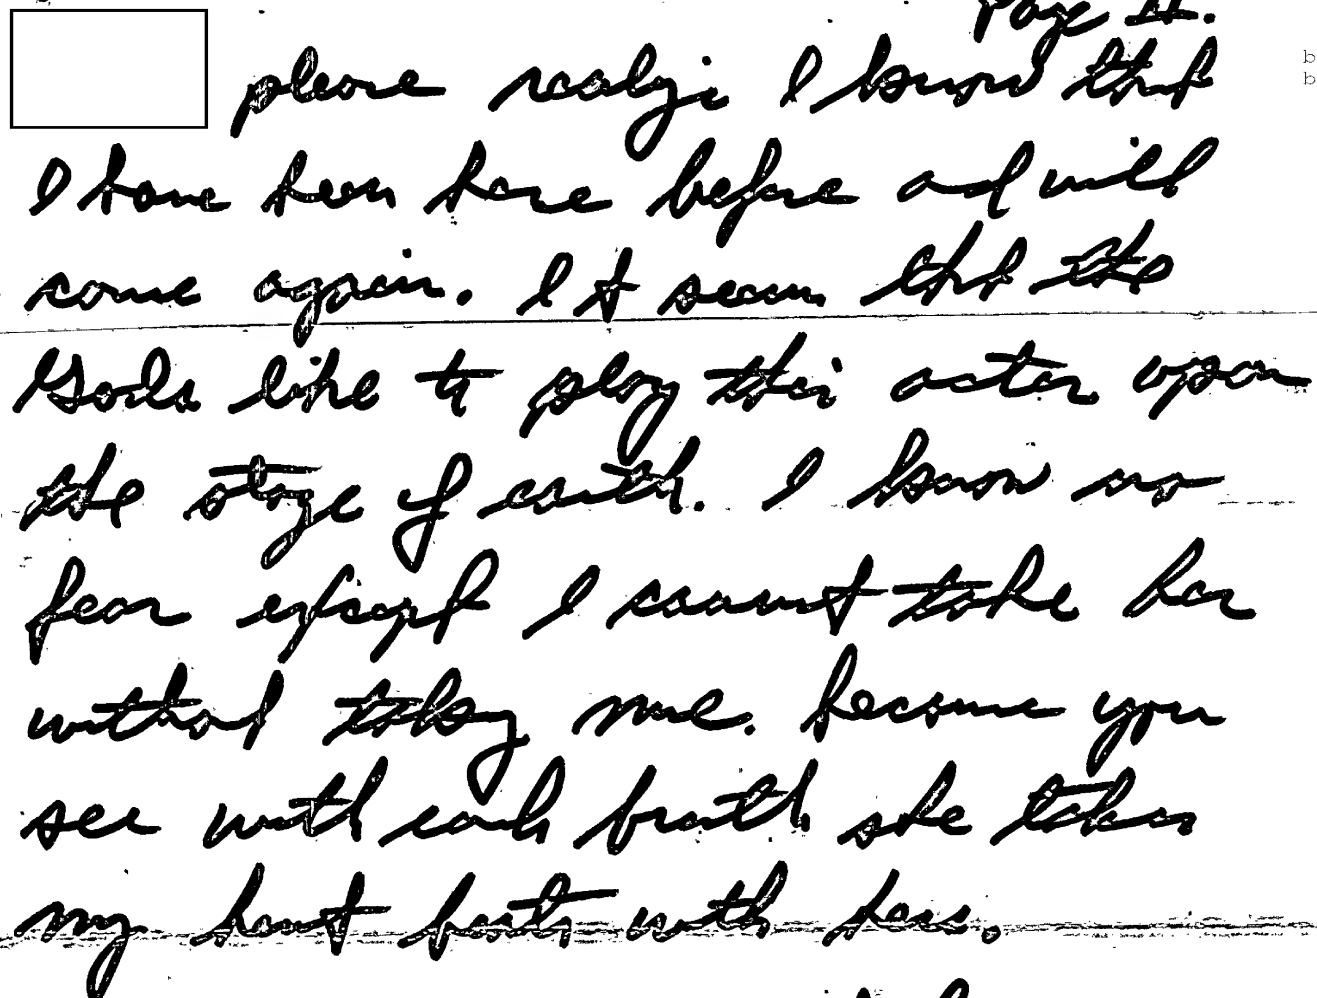 Page II.
please realize I know that
I have been here before and will
come again. It seems that the
Gods like to play their actor upon
the stage of earth. I know no
fear except I cannot take her
without taking me. because you
see with each breath she takes
my heart beats with hers.